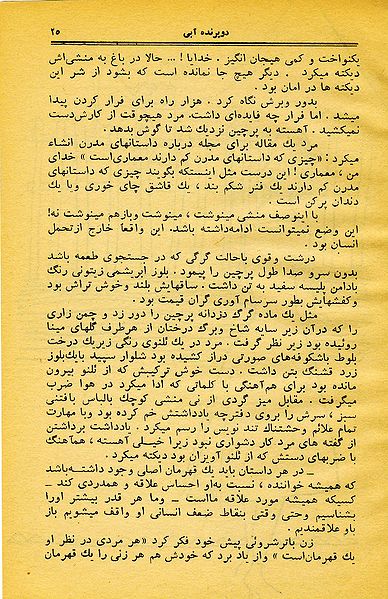 دوپرنده آبی ۲۵
یکنواخت و کمی هیجان انگیز . خدایا !... حالا در باغ به منشی‌اش
دیکته میکرد . دیگر هیچ جا نمانده است که بشود از شر این
دیکته ها در امان بود .
بدور وبرش نگاه کرد . هزار راه برای فرار کردن پیدا
میشد . اما فرار چه فایده‌ای داشت. مرد هیچوقت از کارش‌دست
نمیکشید . آهسته به پرچین نزدیك شد تا گوش بدهد .
مرد یك مقاله برای مجله درباره داستانهای مدرن انشاء
میکرد : «چیزی که داستانهای مدرن کم دارند معماری‌است » خدای
من ، معماری ! این درست مثل اینستکه بگویند چیزی که داستانهای
مدرن کم دارند یك فنر شکم بند ، یك قاشق چای خوری ویا یك
دندان پرکن است .
با اینوصف منشی مینوشت ، مینوشت وبازهم مینوشت نه!
این وضع نمیتوانست ادامه‌داشته باشد. این واقعا خارج ازتحمل
انسان بود .
درشت وقوی باحالت گرگی که در جستجوی طعمه باشد
بدون سرو صدا طول پرچین را پیمود . بلوز ابریشمی زیتونی رنگ
بادامن پلیسه سفید به تن داشت . ساقهایش بلند وخوش تراش بود
وکفشهایش بطور سرسام آوری گران قیمت بود .
مثل یك ماده گرگ دزدانه پرچین را دور زد و چمن زاری
را که درآن زیر سایه شاخ وبرگ درختان از هرطرف گلهای مینا
روئیده بود زیر نظر گرفت . مرد در یك ننوی رنگی زیریك درخت
بلوط باشکوفه‌های صورتی دراز کشیده بود شلوار سپید بایك‌بلوز
زرد قشنگ بتن داشت . دست خوش ترکیبش که از ننو بیرون
مانده بود برای هم‌آهنگی با کلماتی که ادا میکرد در هوا ضرب
میگرفت . مقابل میز گردی از نی منشی کوچك بالباس بافتنی
سبز ، سرش را بروی دفترچه یادداشتش خم کرده بود وبا مهارت
تمام علائم وحشتناك تند نویس را رسم میکرد . یادداشت برداشتن
از گفته های مرد کار دشواری نبود زیرا خیلی آهسته ، هم‌آهنگ
با ضربهای دستش که از ننو آویزان بود دیکته میکرد .
ــ در هر داستان باید یك قهرمان اصلی وجود داشته‌باشد
که همیشه خواننده ، نسبت به‌او احساس علاقه و همدردی کند ــ
کسیکه همیشه مورد علاقه مااست ــ وما هر قدر بیشتر اورا
بشناسیم وحتی وقتی بنقاط ضعف انسانی او واقف میشویم باز
باو علاقمندیم .
زن باترشروئی پیش خود فکر کرد «هر مردی در نظر او
یك قهرمان‌است » واز یاد برد که خودش هم هر زنی را یك قهرمان